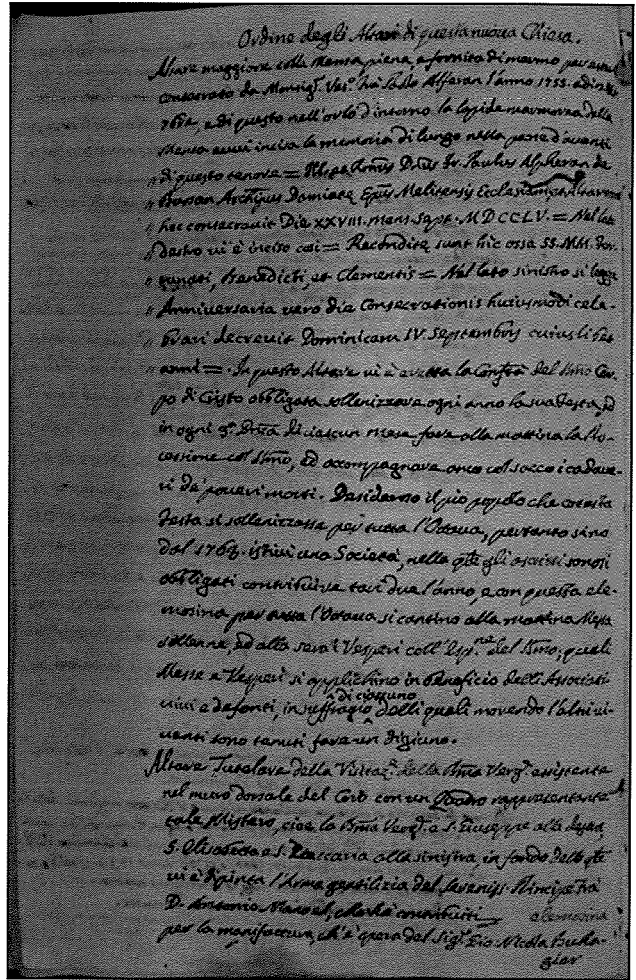 Ordine degli Altari di questa nuova Chiesa.
Altare maggiore colla Mensa piena, e fornita di marmo per
consecrato da Monsig.r Ves.o fra Paolo Alferan l'anno 1755.
e di questo nell'orlo d'intorno la lapide marmorea della
Mensa evvi incisa la memoria di lungo nella parte d'avanti
di questo tenore = Ill. D.nus Fr. Paulus Alpheran de
Bussan Archpūs Damiatę Epūs Melitensis Ecclesiam
hec consecravit Die XXVIII. mens. Sept. MDCCLV. = Nel lato
destro vi è inciso così = Recondita sunt hic ossa SS. MM. For
tunati, Benedicti, et Clementis = Nel lato sinistro si legge
Anniversaria vero dia Consecrationis huiusmodi cele
brari decrevit Dominicam IV Septembris cuiuslibet
anni = . In questo Altare vi è eretta la Confr.a del Smo Cor
po di Cristo obbligata sollenizzare ogni anno la sua Festa, ed
in ogni 3.a Dnca di ciascun mese fare alla mattina la Pro
cessione col Smo, ed accompagnare anco col sacco i cadave
ri de' poveri morti. Desideroso il pio popolo che cotesta
Festa si sollenizzasse per tutta l'Ottava, pertanto sino
dal istituì una Società, nella qle gli ascritti sonosi
obbligati contribuire tarì due l'anno, e con questa ele
mosina per tutta l'Ottava si cantino alla mattina Messa
sollenne, ed alla sera i Vesperi coll'Esp.ne del Smo; quali
Messe e Vesperi si applichino in beneficio delli Associati
vivi e defonti, in suffragio di ciascuno delli quali morendo l'altri vi
venti sono tenuti fare un digiuno.
Altare Tutelare della Visitaz.e della Bma Verg.e esistente
nel muro dorsale del Coro con un Quadro rappresentante
tale Mistero, cioè la Bma Verg.e e S. Giuseppe alla destra
S. Elisabetta e S. Zaccaria alla sinistra, in fondo dello qle
vi è dipinta l'Arma gentilizia del Sereniss. Principe fra
D. Antonio Manoel, elemosina
per la manifattura, ch'è opera del Sig.r Gio Nicola Buha
giar